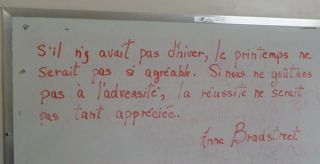 S'il n'y avait pas d'hiver, le printemps ne
serait pas si agréable. Si nous ne goûtions
pas à l'adversité, la réussite ne serait
pas tant appréciée.
Anne Bradstreet